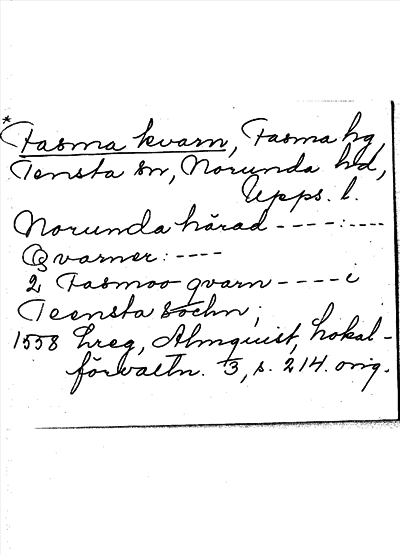 * Fasma kvarn, Fasma hg,
Tensta sn, Norunda hd,
Upps. l.
Norunda härad ----:----
Qvarner: ----
2 Fasmoo qvarn ---- i
Teensta sochn;
1558 hreg, Almquist, Lokal-
förvaltn. 3, s. 214. orig.